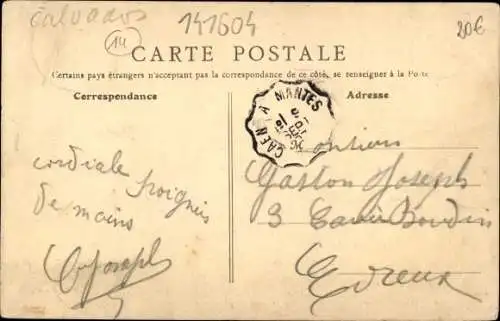 Calvados
14
141604
20€
CARTE POSTALE
Certains pays étrangers n'acceptant pas la correspondance de ce côté, se renseigner à la Poste
Correspondance
Adresse
CAEN A MANTES
cordiale Poignée
de mains
Joseph
Monsieur
Gaston Joseph
3
Evreux